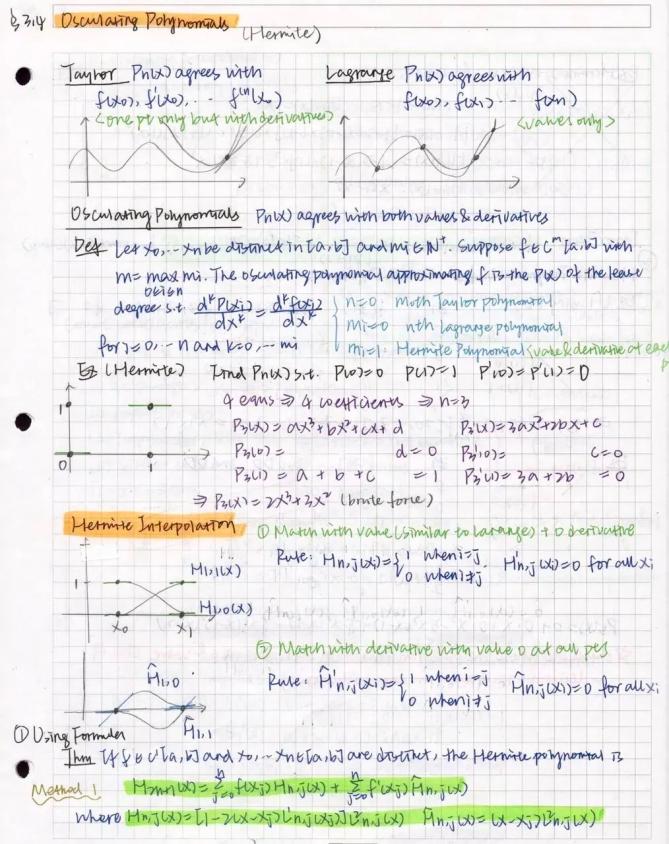 § 3.4 Osculating Polynomials (Hermite)
Taylor Pn(x) agrees with
f(x0), f'(x0), ... f^(n)(x0)
<one pt only but with derivatives>
Lagrange Pn(x) agrees with
f(x0), f(x1) ... f(xn)
<values only>
Osculating Polynomials Pn(x) agrees with both values & derivatives
Def Let x0, ... xn be distinct in [a,b] and mi ∈ N+. Suppose f ∈ C^m [a,b] with
m = max mi. The osculating polynomial approximating f is the P(x) of the least
0≤i≤n
degree s.t. d^k P(xi)/dx^k = d^k f(xi)/dx^k { n=0: m0th Taylor polynomial
mi=0 nth Lagrange polynomial
for i=0, ... n and k=0, ... mi
mi=1: Hermite Polynomial <value & derivative at each p
Eg (Hermite) Find Pn(x) s.t. P(0)=0 P(1)=1 P'(0)=P'(1)=0
4 eqns ⇒ 4 coefficients ⇒ n=3
P3(x) = ax³+bx²+cx+d P3'(x)=3ax²+2bx+c
P3(0) = d = 0 P3'(0)= c=0
P3(1) = a + b + c = 1 P3'(1)= 3a+2b = 0
⇒ P3(x) = 2x³+3x² (brute force)
1
0 1
Hermite Interpolation ① Match with value (similar to larange) + 0 derivative
Rule: Hn,j(xi)={ 1 when i=j 0 when i≠j. H'n,j(xi)=0 for all xi
1
H1,1(x)
H1,0(x)
x0 x1
② Match with derivative with value 0 at all pts
Rule: Ĥ'n,j(xi)={ 1 when i=j 0 when i≠j Ĥn,j(xi)=0 for all xi
Ĥ1,0
Ĥ1,1
① Using Formular
Thm If f ∈ C'[a,b] and x0, ... xn ∈ [a,b] are distinct, the Hermite polynomial is
Method 1 H2n+1(x) = Σ(j=0 to n) f(xj) Hn,j(x) + Σ(j=0 to n) f'(xj) Ĥn,j(x)
where Hn,j(x) = [1-2(x-xj)L'n,j(xj)]L²n,j(x) Ĥn,j(x) = (x-xj)L²n,j(x)